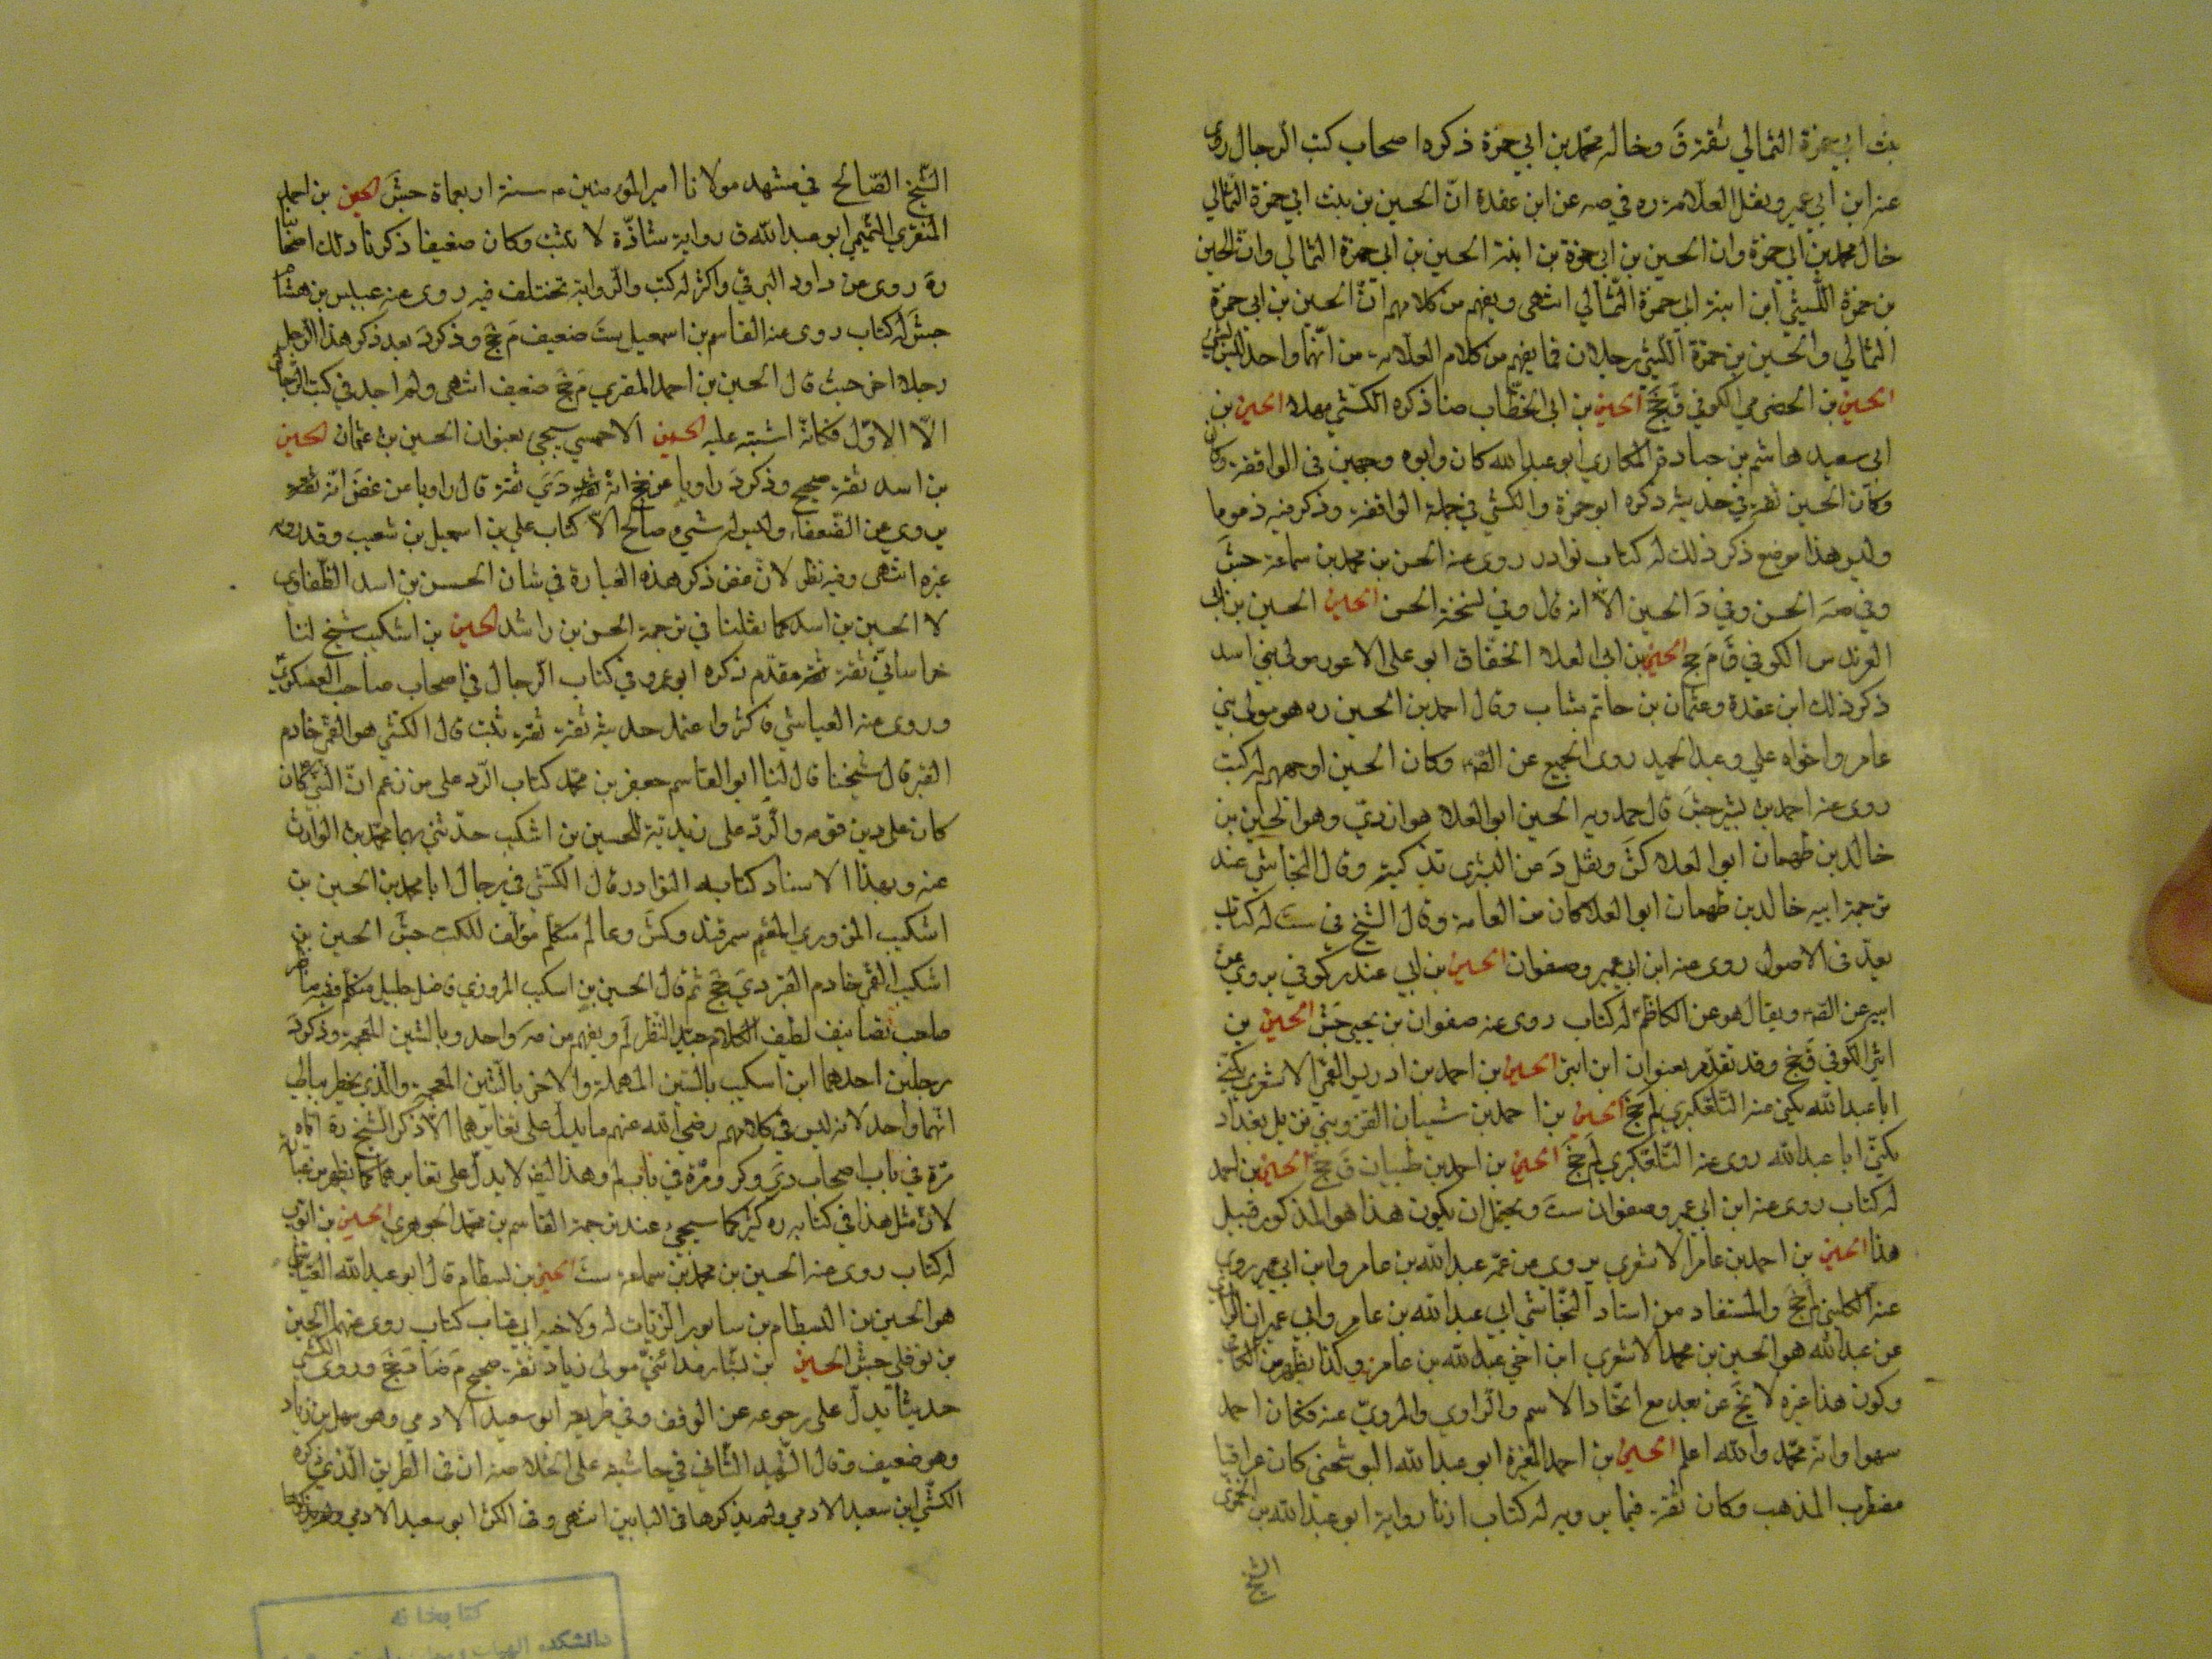 بنت ابي حمزة الثمالي ثقة ق وخاله محمد بن ابي حمزة ذكره اصحاب كتب الرجال روى
عنه ابن ابي عمير ونقل العلامة ره في صه عن ابن عقدة انّ الحسين بن بنت ابي حمزة الثمالي
خال محمد بن ابي حمزة وان الحسين بن ابي حمزة بن ابنة الحسين بن ابي حمزة الثمالي وانّ الحسين
بن حمزة اللّيثي ابن ابنة ابي حمزة الثمالي انتهى ويفهم من كلامهم انّ الحسين بن ابي حمزة
الثمالي والحسين بن حمزة اللّيثي رجلان فما يفهم من كلام العلامة من انّهما واحد ليس
الحسين بن الحضرمي الكوفي ق جخ الحسين بن ابي الخطّاب ذكره الكشّي مهملا الحسين بن
ابي سعيد هاشم بن حيان المكاري ابو عبد الله كان وابوه وجهين في الواقفة وكان
وكان الحسين ثقة في حديثه ذكره ابو عمرو الكشّي في جملة الواقفة وذكر فيه ذموما
وليس هذا موضع ذكر ذلك له كتاب نوادر روى عنه الحسن بن محمد بن سماعة جش
وفي صه الحسن وفي د الحسين الّا انه قال وفي نسخة الحسن الحسين الحسين بن
العرندس الكوفي ق م جخ الحسين بن ابي العلا الخفّاف ابو علي الاعور مولى بني اسد
ذكر ذلك ابن عقدة وعثمان بن حاتم منتاب وقال احمد بن الحسين ره هو مولى بني
عامر واخواه علي وعبد الحميد روى الجميع عن الصّ وكان الحسين اوجههم له كتب
روى عنه احمد بن بشير جش قال حمدويه الحسين ابو العلا هو ازديّ وهو الحسين بن
خالد بن طهمان ابو العلا كش ونقل د عن البشرى تذكيته وقال النجاشي عند
ترجمة ابيه خالد بن طهمان ابو العلا كان من العامة وقال الشيخ في ست له كتاب
يعدّ في الاصول روى عنه ابن ابي عمير وصفوان الحسين بن ابي عندر كوفي يروي عن
ابيه عن الصّ ويقال هو عن الكاظم له كتاب روى عنه صفوان بن يحيى جش الحسين بن
اثير الكوفي ق جخ وقد تقدّم بعنوان ابن ابتر الحسين بن احمد بن ادريس القمّي الاشعري يكنّى
ابا عبد الله يكنى عنه التلّعكبري لم جخ الحسين بن احمد بن شيبان القزويني نزيل بغداد
يكنّى ابا عبد الله روى عنه التلّعكبري لم جخ الحسين بن احمد بن ظبيان ق جخ الحسين بن احمد
له كتاب روى عنه ابن ابي عمير وصفوان ست ويحتمل ان يكون هذا هو المذكور قبيل
هذا الحسين بن احمد بن عامر الاشعري يروي عن عمّه عبد الله بن عامر وابن ابي عمير روى
عنه الكليني لم جخ والمستفاد من اسناد النجّاشي الى عبد الله بن عامر وابي عمير
عن عبد الله هو الحسين بن محمد الاشعري ابن اخي عبد الله بن عامر وكذا يظهر من الكافي
وكون هذا غيره لا يخ عن بعد مع اتّحاد الاسم والراوي والمرويّ عنه فكان احمد
سهوا وانّه محمّد والله اعلم الحسين بن احمد المغيرة ابو عبد الله البوشنجي كان عراقيا
مضطرب المذهب وكان ثقة فيما يرويه له كتاب اذنا رواية ابو عبد الله بن الخمري
الشيخ
الشّيخ الصّالح في مشهد مولانا امير المؤمنين سنة اربعماة جش الحسين بن احمد
المنقري التّميمي ابو عبد الله ق رواية شاذّة لا تثبت وكان ضعيفا ذكر ذلك اصحابنا
ره روى عن داود الرقي واكثر له كتب والرواية تختلف فيه روى عنه عبيس بن هشام
جش له كتاب روى عنه القاسم بن اسمعيل ست ضعيف م جخ وذكر د بعد ذكر هذا الرجل
رجلا اخر حيث قال الحسين بن احمد المقري م جخ ضعيف انتهى ولم اجد في كتب الرجال
الّا الاوّل فكانّه اشتبه عليه الحسين الاحمسي سيجئ بعنوان الحسين بن عثمان الحسين
بن اسد ثقة صحيح وذكر د راويا عن جخ انّه ثقة د ي ثقة قال راويا عن غض انّه ثقة
يروي عن الضّعفاء وليس له شيء صالح الّا كتاب علي بن اسمعيل بن شعيب وقد رواه
غيره انتهى وفيه نظر لانّ غض ذكر هذه العبارة في شان الحسن بن اسد الطفاوي
لا الحسين بن اسد كما نقلنا في ترجمة الحسن بن راشد الحسين بن اشكيب شيخ لنا
خراسانيّ ثقة مقدّم ذكره ابو عمرو في كتاب الرجال في اصحاب صاحب العسكريّ
وروى عنه العياشي فاكثر واعتمد حديثه ثقة ثقة ثبت قال الكشّي هو القمّي خادم
القبر قال شيخنا قال لنا ابو القاسم جعفر بن محمّد كتاب الرّد على من زعم انّ النّبيّ كان
كان على دين قومه والرّدّ على زيديّة للحسين بن اشكيب حدّثني بهما محمّد بن الوارث
عنه وبهذا الاسناد كتابه النوادر قال الكشّي في رجال ابا محمد بن الحسين بن
اشكيب المروزي المقيم سمرقند وكش وعالم متكلّم مؤلف للكتب جش الحسين بن
اشكيب القمّي خادم القبر دي جخ ثم قال الحسين بن اسكيب المروزي فاضل جليل متكلّم فقيه مناظر
صاحب تصانيف لطيف الكلام جيد النّظر لم ويفهم من صه واحد وبالشّين المعجمة وذكر د
رجلين احدهما ابن اسكيب بالسّين المهملة والاخر بالشّين المعجمة والّذي يخطر ببالي
انّهما واحد لانه ليس في كلامهم رضي الله عنهم ما يدلّ على تغايرهما الّا ذكر الشّيخ ره ايّاه
مرّة في باب اصحاب دي وكر ومرّة في باب لم وهذا ايض لا يدلّ على تغايرهما كما يظهر من
لانّ مثل هذا في كتابه ره كثير كما سيجيء عند ترجمة القاسم بن محمّد الجوهري الحسين بن ايوب
له كتاب روى عنه الحسين بن محمد بن سماعة ست الحسين بن بسطام قال ابو عبد الله العيّاش
هو الحسين بن البسطام بن سابور الزيّات له ولاخيه ابي عتاب كتاب روى عنهم الحسين
بن نوفلي جش الحسين بن بشّار مدائنيّ مولى زياد ثقة صحيح م ضا د جخ وروى الكشي
حديثا يدلّ على رجوعه عن الوقف وفي طريقه ابو سعيد الادمي وهو سهل بن زياد
وهو ضعيف وقال الشّهيد الثّاني في حاشيته على الخلاصة ان في الطريق الّذي ذكره
الكشّي ابن سعيد الادمي ولم يذكرها في البابين انتهى وفي الكش ابو سعيد الادمي
كتابخانه
دانشكده الهيات